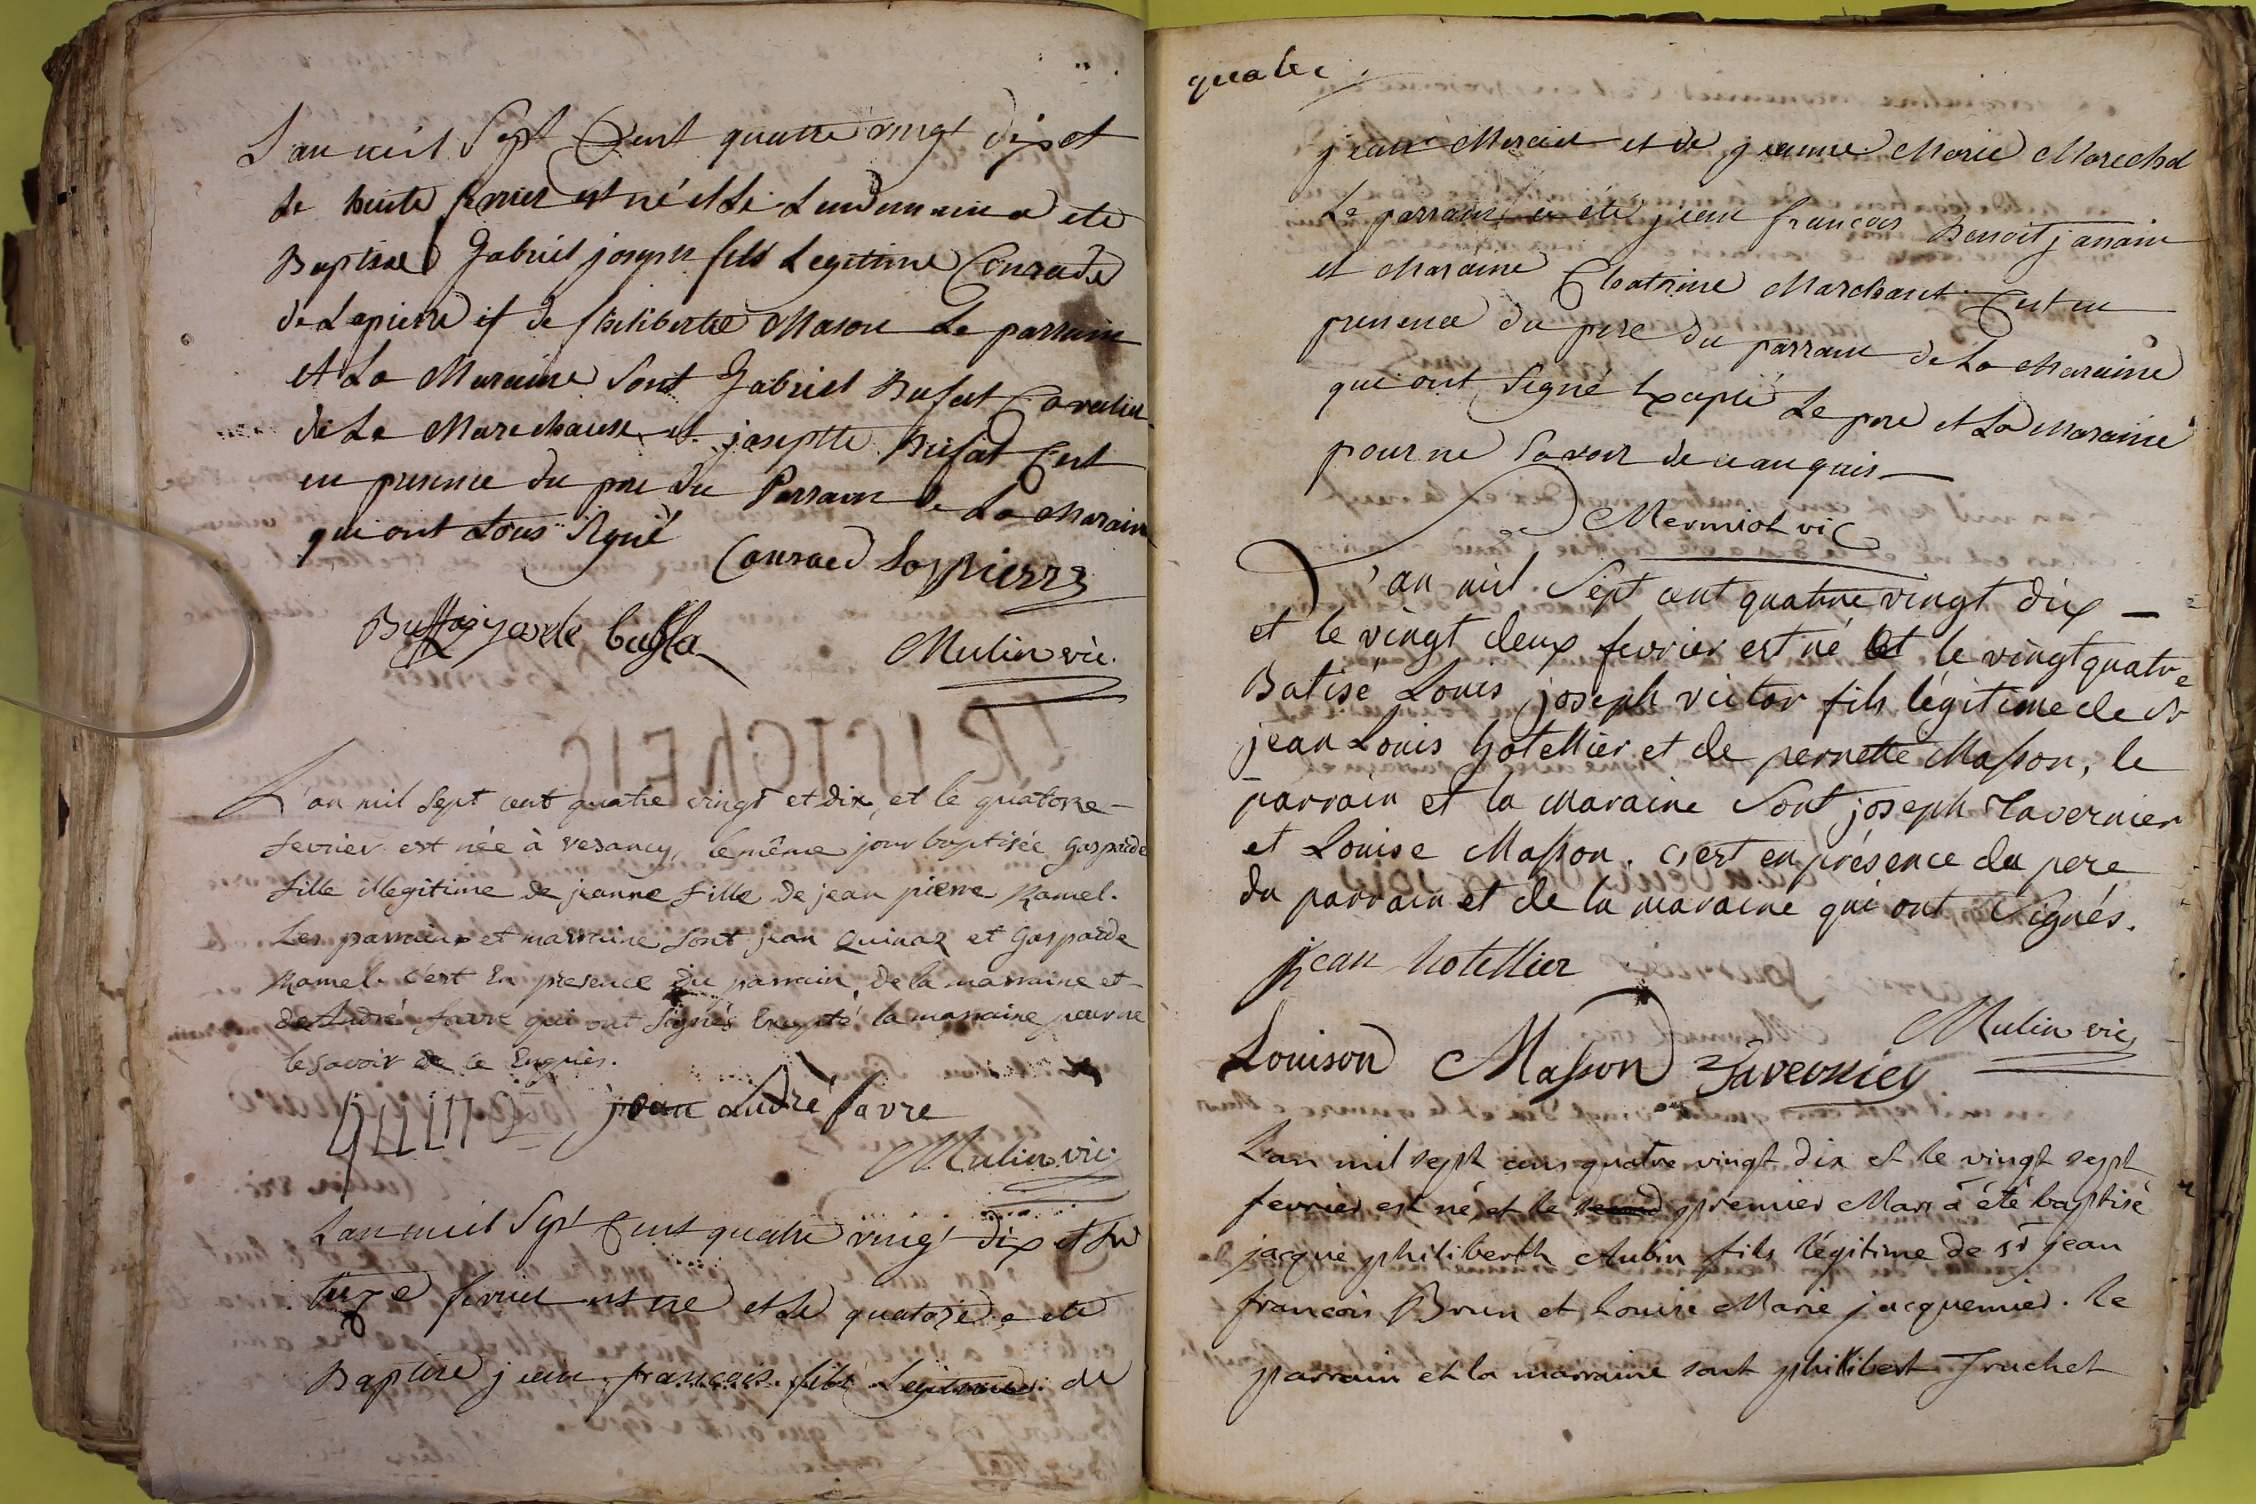 L'an mil Sept Cent quattre vingt dix et
Le trente fevrier est né et Le Lendemain a ete
Baptisé Gabriel joseph fils Legitime Conrade
de Lapierre et de philibertte Mason Le parrain
et La Maraine Sont Gabriel Bufat Cavalier
de La Marechause et josephtte Bufat C'est
en presence du pere du Parrain de La Maraine
qui ont tous signé
Conraed Lapierre
Mulin vic.
L'an mil Sept cent quatre vingt et dix, et le quatorze
fevrier est née à vesancy, le même jour baptisée Gasparde
fille illegitime de jeanne fille de jean pierre Ramel.
Les parrain et marraine sont jean Quinaz et Gasparde
Ramel. c'est En presence Du parrain, De la marraine et
de André favre qui ont Signés Excepté la marraine pour ne
le savoir de ce Enquis.
jean andré favre
Mulin vic.
L'an mil Sept Cent quatre vingt dix et Le
fevrier est né et Le quatorze a ete
Baptise jean françois fils Legitime de
quatre
jean Mercier et de jeanne Marie Marechal
Le parrain a été jean françois Benoit janain
et Maraine Chatrine Marchant C'est en
presence du pere du parrain de La Maraine
qui ont Signé Excepté Le pere et La Maraine
pour ne Savoir de ce anquis
Mermiot vic
L'an mil Sept cent quatrre vingt dix
et le vingt deux fevrier est né et le vingt quatre
Batisé Louis joseph victor fils légitime de Sr
jean Louis hotellier et de pernette Masson, le
parrain et la maraine Sont joseph Tavernier
et Louise Masson. c'est en présence du pere
du parrain et de la maraine qui ont Signés.
jean hotellier
Mulin vic
Louison Masson Tavernier
L'an mil sept cens quatre vingt dix et le vingt sept
fevrier est né, et le premier Mars a été baptisé
jacque philiberth Aubin fils légitime de sr jean
francois Brun et Louise Marie jacquemier. Le
parrain et la marraine sont phillibert Truchet